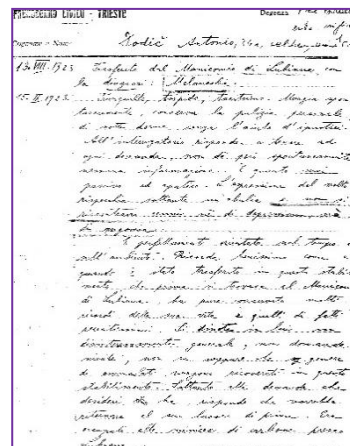 FRENOCOMIO CIVICO - TRIESTE
Degenza
Cognome e Nome
Dodič Antonio,
13. VIII. 1923 Trasferto dal Manicomio di Lubiana con
la diagnosi: Melancolia.
15. 1923. Tranquillo, torpido, taciturno. Mangia spon
taneamente, conserva la pulizia personale
di notte dorme senza l'aiuto d'ipnotici
All' interrogatorio risponde a tono ad
ogni domanda, non dà però spontaneamente
nessuna informazione. È quanto mai
passivo ed apatico. L'espressione del volto
rispecchia soltanto un' abulia e non si
riscontrano
È perfettamente orientato nel tempo e
nell' ambiente. Ricorda benissimo come e
quando è stato trasferito in questo stabili
mento, che prima si trovava al Manicomio
di Lubiana. Ha pure conservato molti
ricordi della sua vita e quelli di fatti
in lui non
generale, non domanda
niente, non sa neppure che genere
di ammalati vengono ricoverati in questo
stabilimento. Soltanto alla domanda che
desideri che ha risponde che vorrebbe
ritornare al suo lavoro di prima. Era
occupato alla miniera di carbone presso